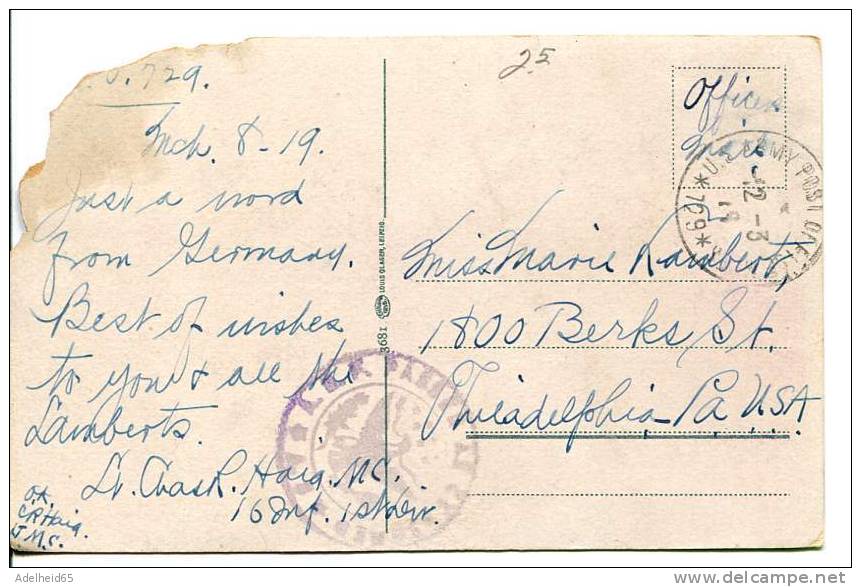 25
729.
Mch. 8-19.
Just a word
from Germany.
Best of wishes
to you & all the
Lamberts.
Lt. Chas R. Haig. M.C.
16 Inf. 1st Div.
O.K.
CR Haig.
Lt M.C.
LOUIS GLASER, LEIPZIG.
3681
Officers
Mail
U.S. ARMY POST OFFICE
*709*
12-3
19
Miss Marie Lambert,
1800 Berks St.
Philadelphia Pa USA
© Adelheid65
http://www.delcampe.net